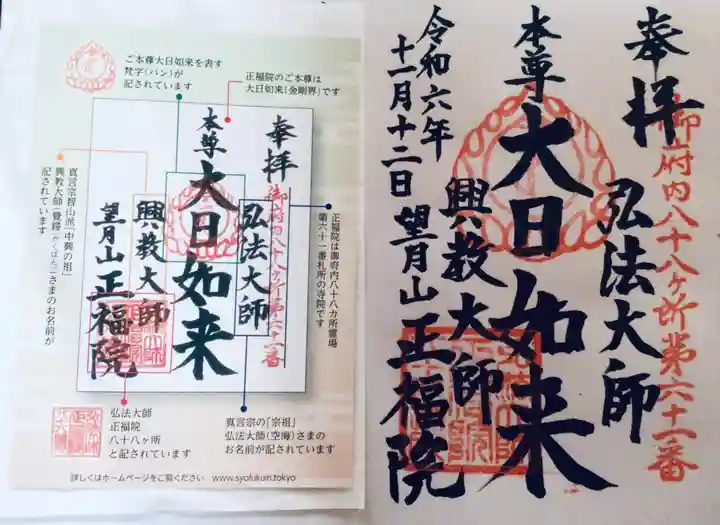 ご本尊大日如来を表す
梵字(バン)が
記されています
正福院のご本尊は
大日如来(金剛界)です
奉拝
御府内八十八ヶ所第六十一番
弘法大師
本尊
大日如来
興教大師
望月山 正福院
正福院は御府内八十八カ所霊場
第六十一番札所の寺院です
真言宗智山派「中興の祖」
興教大師(覚鑁(かくばん))さまのお名前が
記されています
弘法大師
正福院
八十八ヶ所
と記されています
真言宗の「宗祖」
弘法大師(空海)さまの
お名前が記されています
詳しくはホームページをご覧ください www.syofukuin.tokyo
奉拝
御府内八十八ヶ所第六十一番
弘法大師
本尊
大日如来
興教大師
令和六年
十一月十二日
望月山 正福院